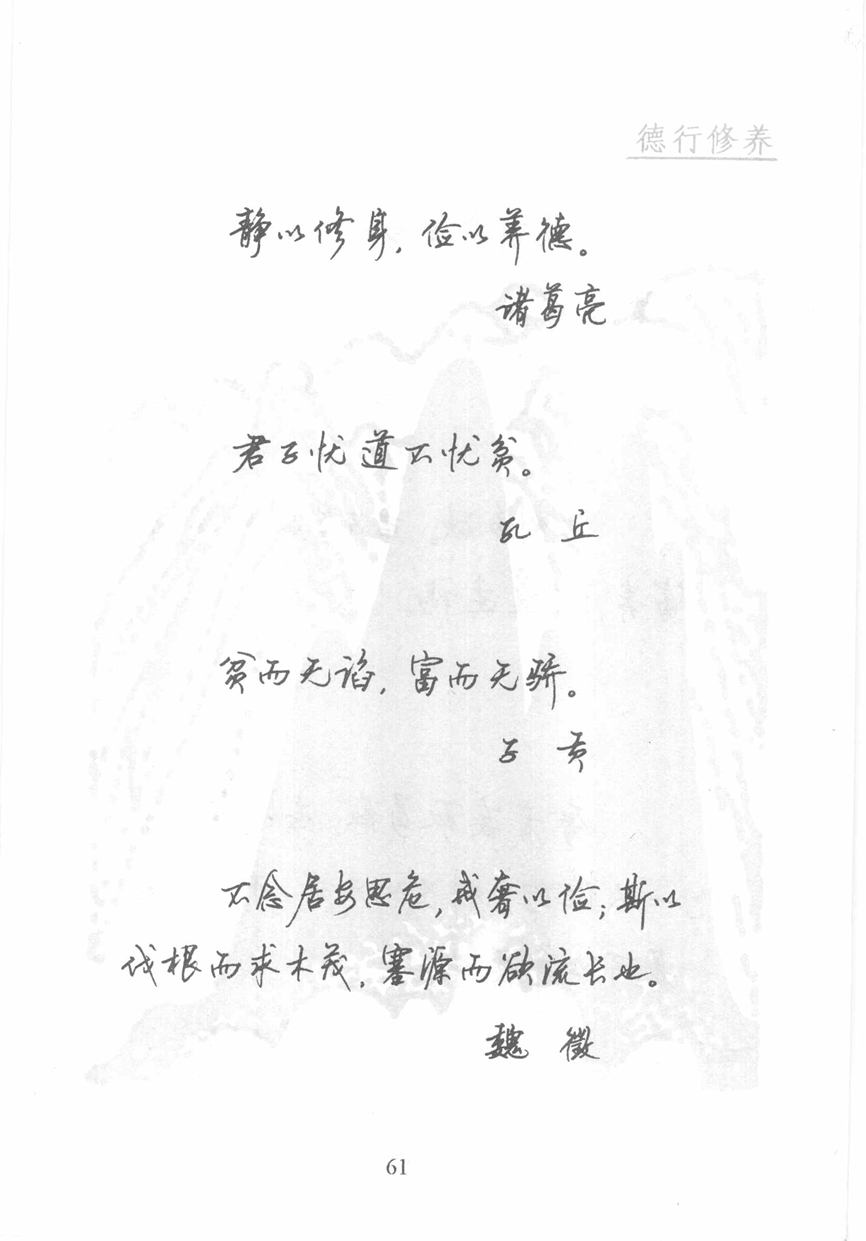 德行修养
静以修身,俭以养德。
诸葛亮
君子忧道不忧贫。
孔 丘
贫而无谄,富而无骄。
子 贡
不念居安思危,戒奢以俭;斯以
伐根而求木茂,塞源而欲流长也。
魏 徵
61